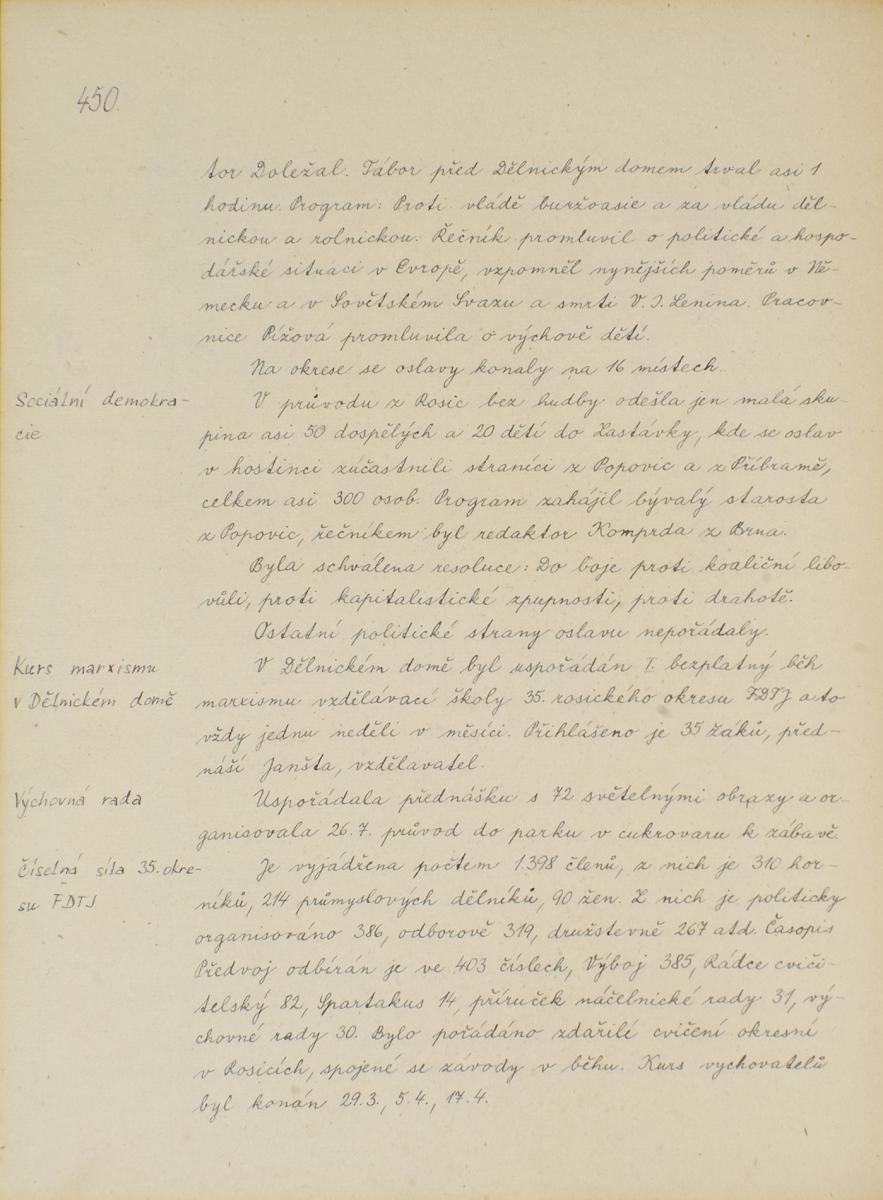 450.
tor Doležal. Tábor před Dělnickým domem trval asi 1
hodinu. Program: Proti vládě buržoasie a za vládu děl-
nickou a rolnickou. Řečník promluvil o politické a hospo-
dářské situaci v Evropě, vzpomněl nynějších poměrů v Ně-
mecku a v Sovětském Svazu a smrti V. I. Lenina. Pracov-
nice Pížová promluvila o výchově dětí.
Na okrese se oslavy konaly na 16 místech.
Sociální demokra-
cie
V průvodu z Rosic bez hudby odešla jen malá sku-
pina asi 50 dospělých a 20 dětí do Zastávky, kde se oslav
v hostinci zúčastnili straníci z Popovic a z Příbramě,
celkem asi 300 osob. Program zahájil bývalý starosta
z Popovic, řečníkem byl redaktor Komprda z Brna.
Byla schválena resoluce: Do boje proti koaliční libo-
vůli, proti kapitalistické zpupnosti, proti drahotě.
Ostatní politické strany oslavu nepořádaly.
Kurs marxismu
v Dělnickém domě
V Dělnickém domě byl uspořádán I. bezplatný běh
marxismu vzdělávací školy 35. rosického okresu FDTJ a to
vždy jednu neděli v měsíci. Přihlášeno je 35 žáků, před-
náší Janšta, vzdělavatel.
Výchovná rada
Uspořádala přednášku s 72 světelnými obrazy a or-
ganisovala 26.7. průvod do parku v cukrovaru k zábavě.
Číselná síla 35. okre-
su FDTJ
Je vyjádřena počtem 1.398 členů, z nich je 310 hor-
níků, 214 průmyslových dělníků, 90 žen. Z nich je politicky
organisováno 386, odborově 319, družstevně 267 atd. Časopis
Předvoj odbírán je ve 403 číslech, Výboj 385, Rádce cviči-
telský 82, Spartakus 14, příruček náčelnické rady 31, vý-
chovné rady 30. Bylo pořádáno zdařilé cvičení okresní
v Rosicích, spojené se závody v běhu. Kurs vychovatelů
byl konán 29.3., 5.4., 17.4.